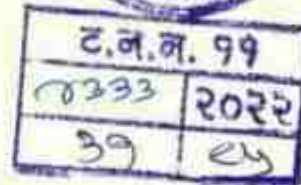 ट.न.न. ११
७३३३ २०२२
३१ ८५